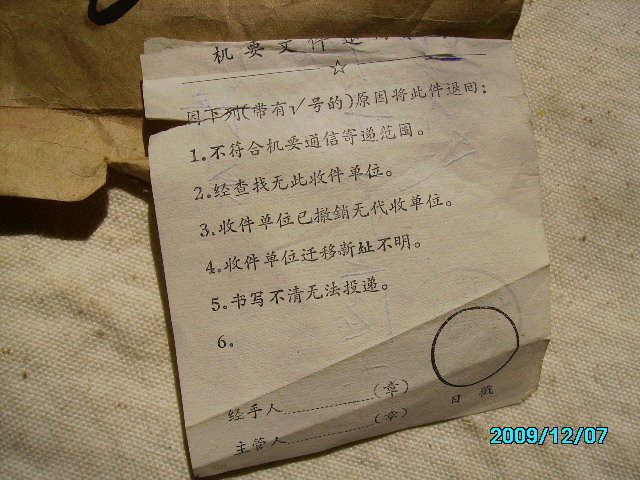 机要文件退
因下列(带有√号的)原因将此件退回：
1.不符合机要通信寄递范围。
2.经查找无此收件单位。
3.收件单位已撤銷无代收单位。
4.收件单位迁移新址不明。
5.书写不清无法投递。
6.
经手人 (章)
主管人 (章)
日戳
2009/12/07